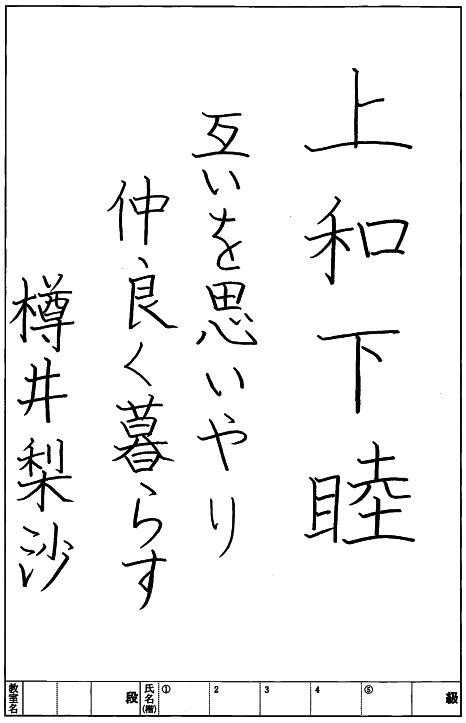 上和下睦
互いを思いやり
仲良く暮らす
樽井梨沙
級 ⑤ 4 3 2 ① 氏名(楷) 段 教室名